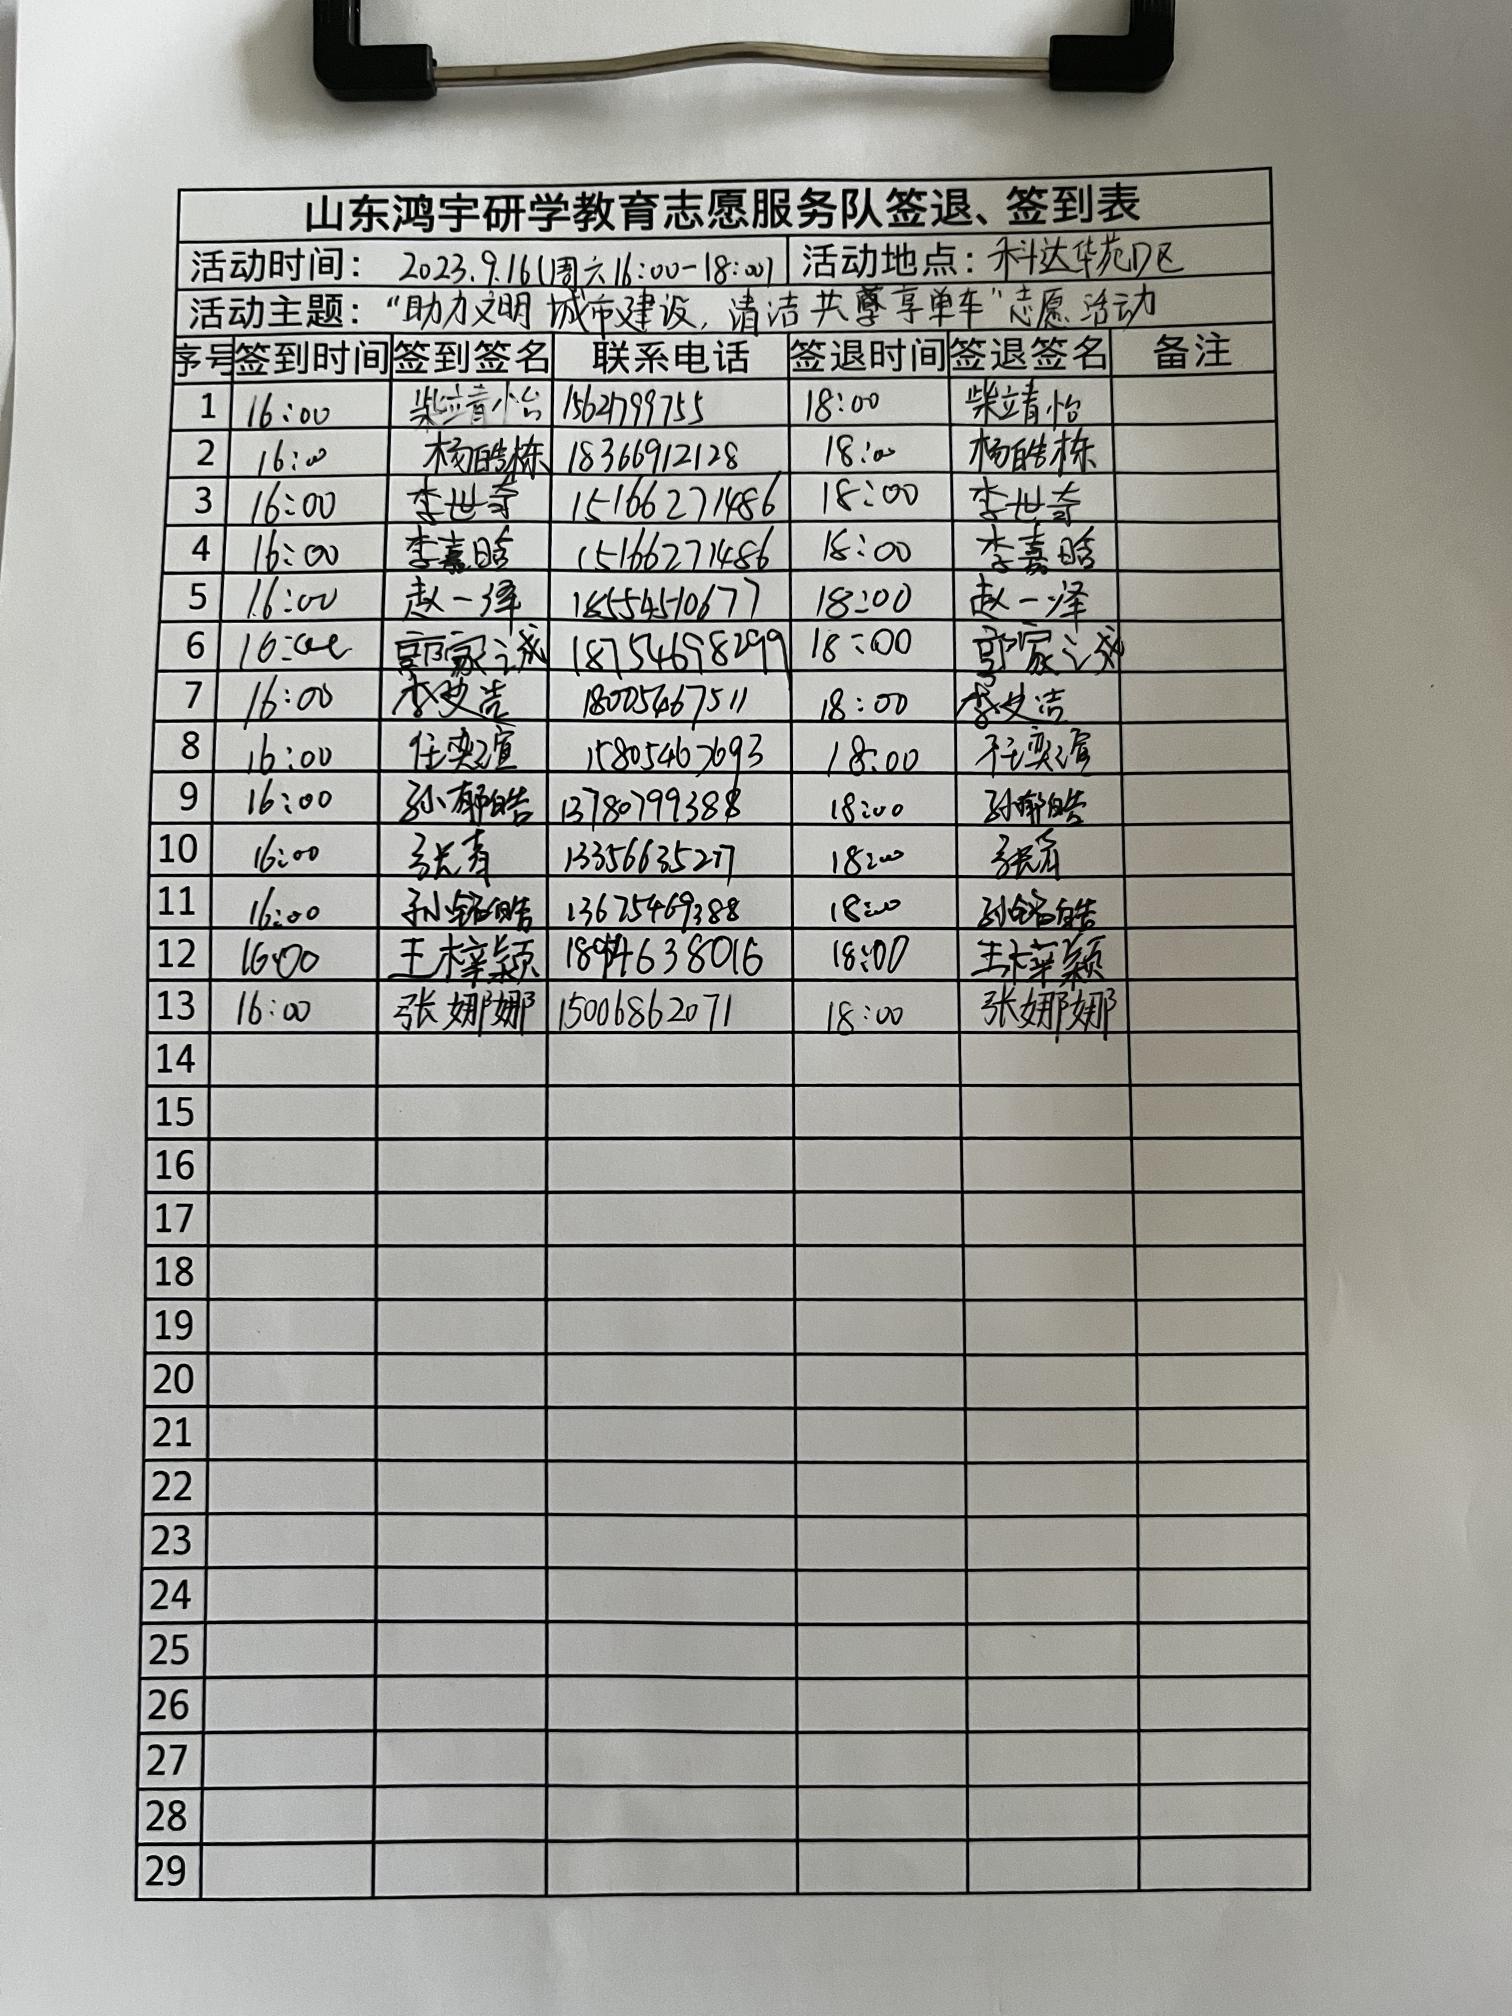 山东鸿宇研学教育志愿服务队签退、签到表
活动时间：2023.9.16(周六16:00-18:00) 活动地点：科达华苑D区
活动主题："助力文明城市建设，清洁共享单车"志愿活动
序号 签到时间 签到签名 联系电话 签退时间 签退签名 备注
1 16:00 柴靖怡 18:00 柴靖怡
2 16:00 杨皓栋 18366912128 18:00 杨皓栋
3 16:00 李世奇 15166271486 18:00 李世奇
4 16:00 李嘉晗 15166271486 18:00 李嘉晗
5 16:00 赵一泽 18554510677 18:00 赵一泽
6 16:00 郭家诚 18754698299 18:00 郭家诚
7 16:00 18005467511 18:00
8 16:00 任奕瑄 15805467693 18:00 任奕瑄
9 16:00 孙郁皓 13780799388 18:00 孙郁皓
10 16:00 13356635277 18:00
11 16:00 孙铭皓 13675469388 18:00 孙铭皓
12 16:00 王梓颖 18:00 王梓颖
13 16:00 张娜娜 15006862071 18:00 张娜娜
14
15
16
17
18
19
20
21
22
23
24
25
26
27
28
29